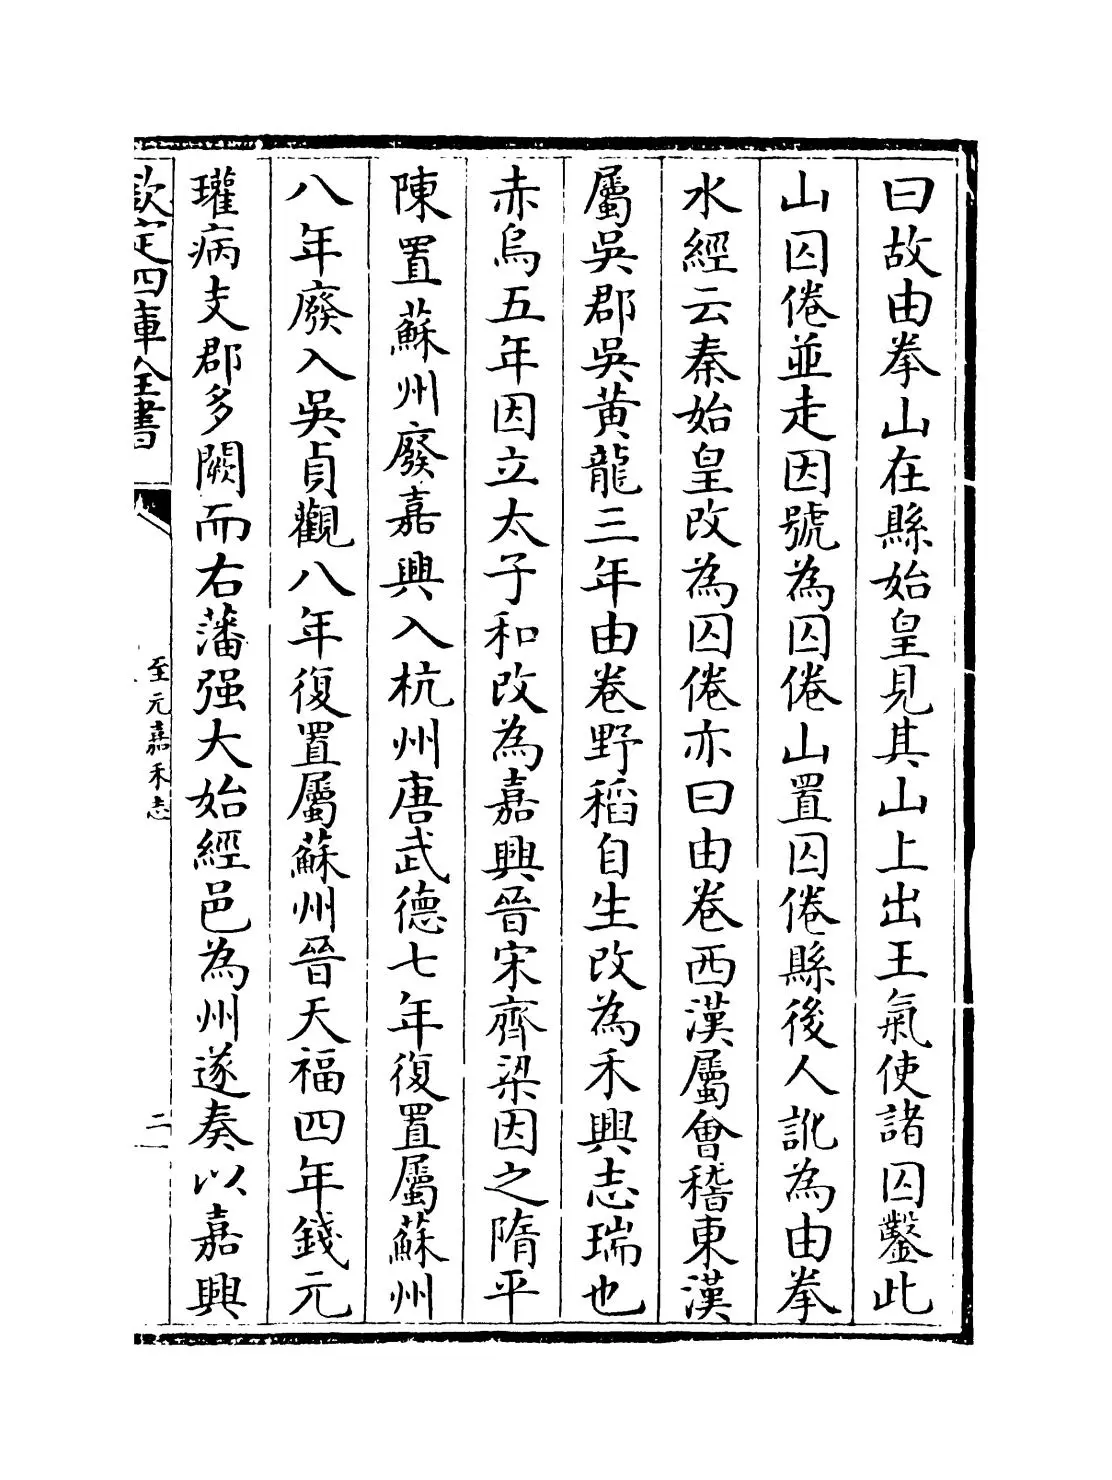 曰故由拳山在縣始皇見其山上出王氣使諸囚鑿此
山囚倦並走因號為囚倦山置囚倦縣後人訛為由拳
水經云秦始皇改為囚倦亦曰由卷西漢屬會稽東漢
屬吳郡吳黃龍三年由卷野稻自生改為禾興志瑞也
赤烏五年因立太子和改為嘉興晉宋齊梁因之隋平
陳置蘇州廢嘉興入杭州唐武德七年復置屬蘇州
八年廢入吳貞觀八年復置屬蘇州晉天福四年錢元
瓘病支郡多闕而右藩强大始經邑為州遂奏以嘉興
欽定四庫全書
至元嘉禾志
二